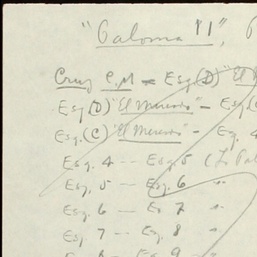 "Paloma "1",
Cruz C.M = Esq (D) "El
Esq (D) "El Mirevos" – Esq
Esq. (C) "El Mirevos" – Esq. 4
Esq. 4 -- Esq 5 (La Pal
Esq. 5 – Esq. 6 "
Esq 6 – Es 7 "
Esq 7 – Esq. 8 "
Esq. 9 –